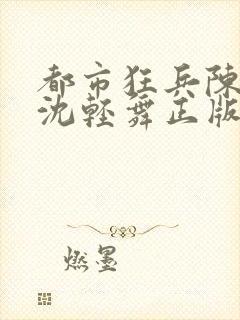 都市狂兵陳
沈輕舞正版
燃墨